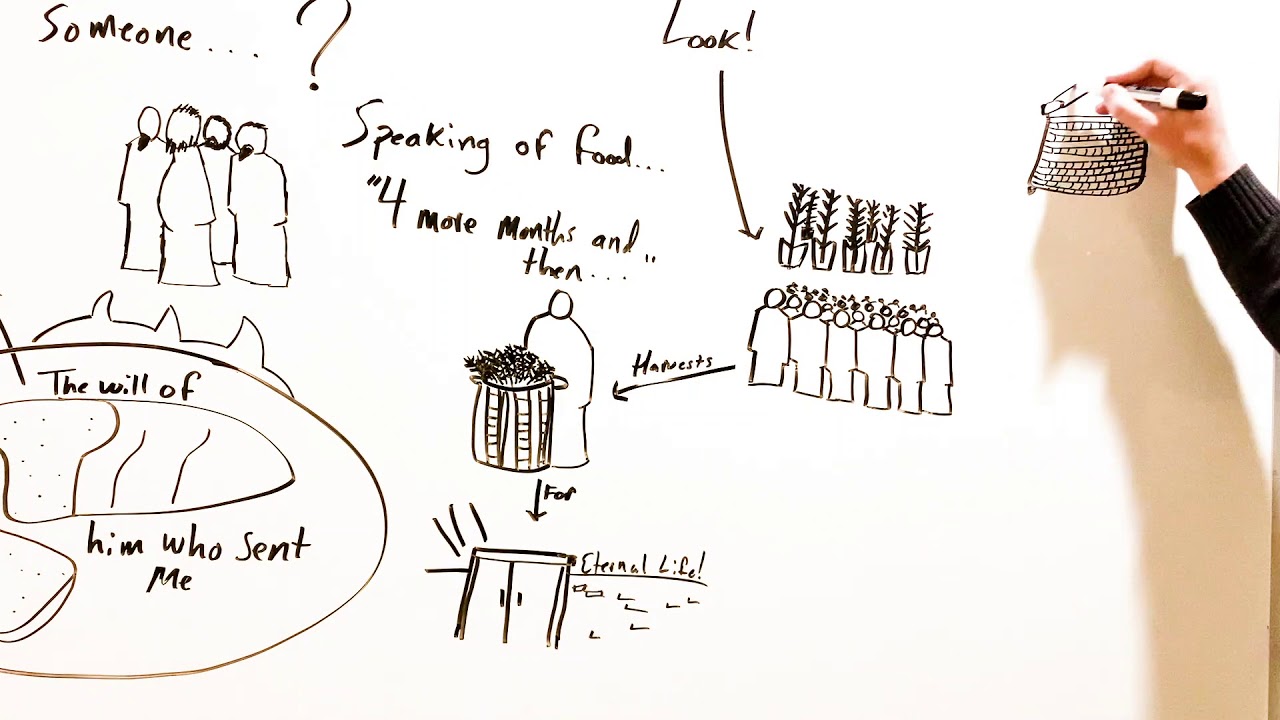 Someone... ?
Look!
Speaking of food...
"4 more months and
then...."
Harvests
The will of
him who sent
Me
For
Eternal Life!